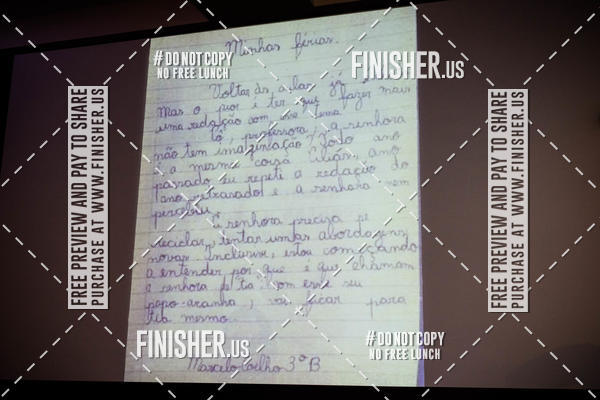 Minhas férias.
#DONOTCOPY
NO FREE LUNCH
FINISHER.US
Voltar às aulas já
Mas o pior é ter que fazer mais
uma redação com esse tema
Tô, professora, a senhora
não tem imaginação? Todo ano
é a mesma coisa. Aliás, ano
passado eu repeti a redação do
ano retrasado e a senhora nem
percebeu.
A senhora precisa se
reciclar, tentar umas abordagens
novas. Inclusive, estou começando
a entender por que é que chamam
a senhora de tia. Com esse seu
papo-aranha, vai ficar para
tia mesmo.
FREE PREVIEW AND PAY TO SHARE
PURCHASE AT WWW.FINISHER.US
FREE PREVIEW AND PAY TO SHARE
PURCHASE AT WWW.FINISHER.US
FINISHER.US
#DONOTCOPY
NO FREE LUNCH
Marcelo Coelho 3º B